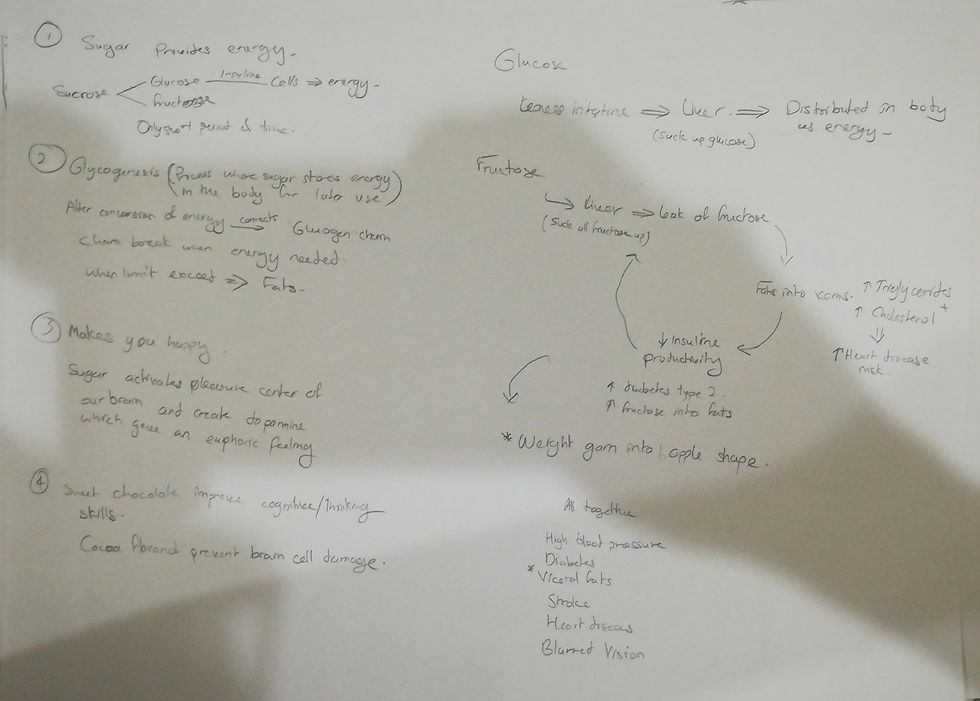 ① Sugar Provides energy.
Sucrose < Glucose —Insuline— Cells ⇒ energy.
Fructose
Only short period of time.
② Glycogenesis (Process where sugar stores energy
in the body for later use)
After conversion of energy —connects→ Glucogen chain
Chain break when energy needed.
when limit exceed ⇒ Fats.
③ Makes you happy.
Sugar activates pleasure center of
our brain and create dopamine
which gave an euphoric feeling
④ Sweet chocolate improve cognitive/thinking
skills.
Cocoa flavanol prevent brain cell damage.
Glucose
intestine ⇒ Liver. ⇒ Distributed in body
(suck up glucose) as energy
Fructose
↳ Liver ⇒ leak of fructose
(Suck all fructose up)
Fats into veins. ↑ Triglycerides
+
↑ Cholesterol
⇓
↑ Heart disease
risk.
↓ Insuline
productivity
↑ diabetes type 2.
↑ fructose into fats
* Weight gain into apple shape.
All together
High bloot pressure
Diabetes
* Viceral fats
Stroke
Heart diseas
Blurred Vision